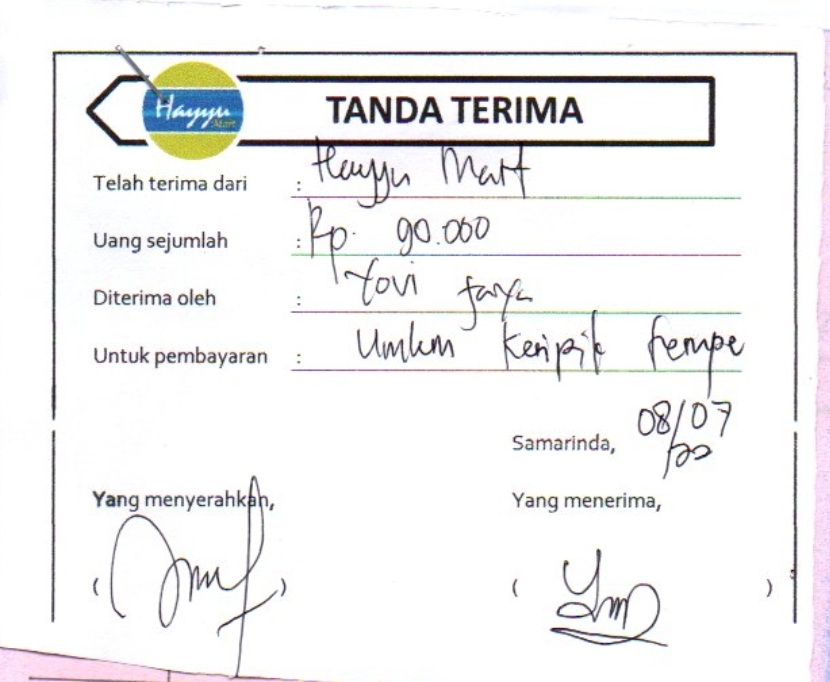 Hayyu
Mart
TANDA TERIMA
Telah terima dari : Hayyu Mart
Uang sejumlah : Rp. 90.000
Diterima oleh : Yovi
Untuk pembayaran : Umkm Keripik tempe
Samarinda, 08/07
Yang menyerahkan, Yang menerima,
( ) ( )